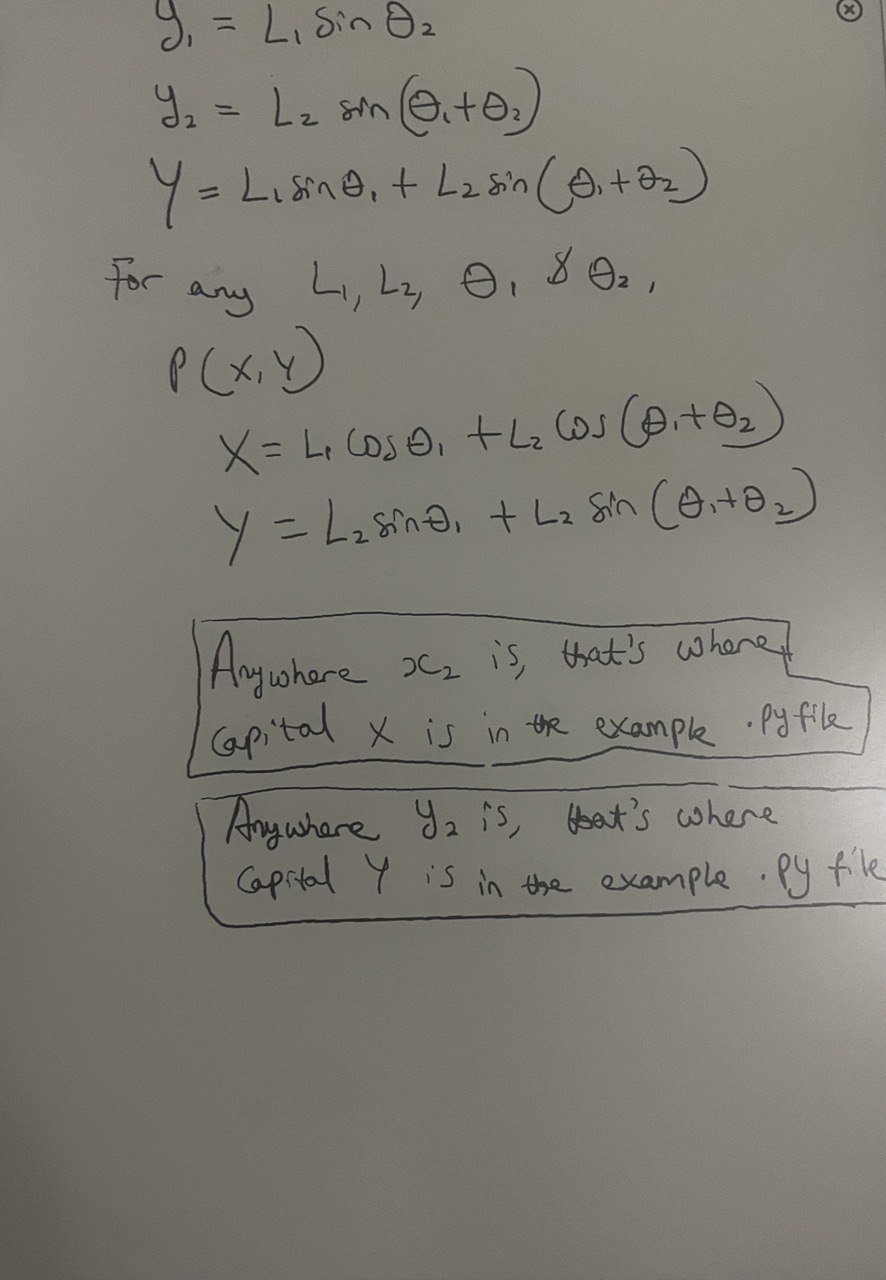 y₁ = L₁ sin θ₂
y₂ = L₂ sin(θ₁+θ₂)
Y = L₁ sin θ₁ + L₂ sin(θ₁+θ₂)
For any L₁, L₂, θ₁ & θ₂,
P(X,Y)
X = L₁ Cos θ₁ + L₂ Cos(θ₁+θ₂)
Y = L₂ sin θ₁ + L₂ sin(θ₁+θ₂)
Anywhere x₂ is, that's where
Capital X is in the example .py file
Anywhere y₂ is, that's where
Capital Y is in the example .py file